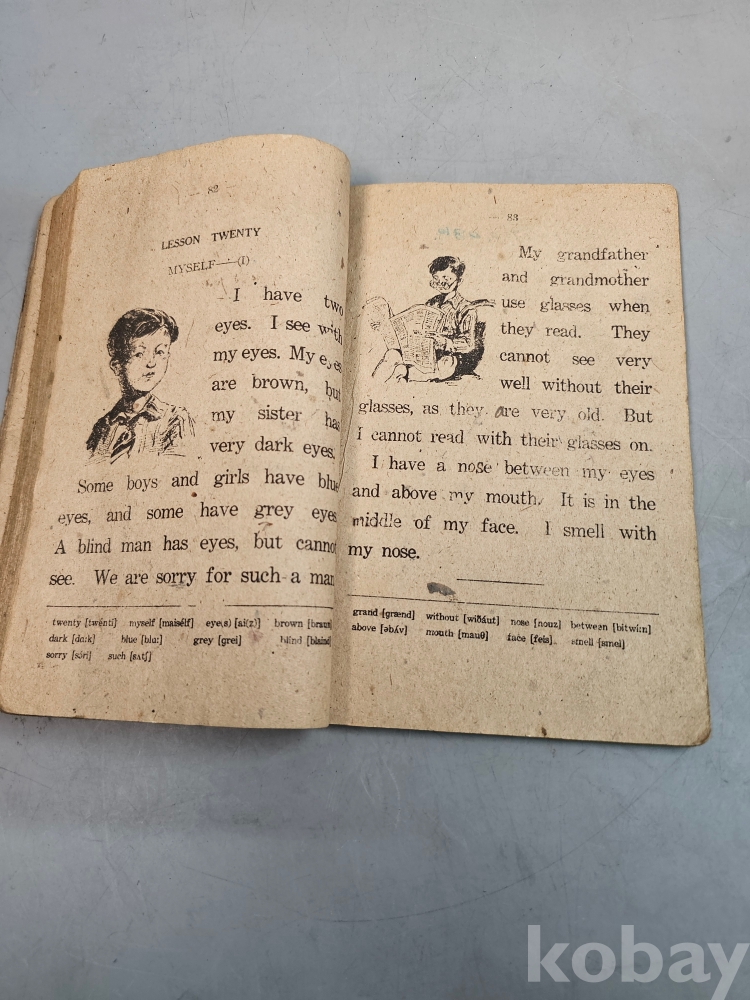 — 82 —
LESSON TWENTY
MYSELF—(I)
I have two
eyes. I see with
my eyes. My eyes
are brown, but
my sister has
very dark eyes.
Some boys and girls have blue
eyes, and some have grey eyes
A blind man has eyes, but cannot
see. We are sorry for such a man
twenty [twénti] myself [maisélf] eye(s) [ai(z)] brown [braun]
dark [dɑːk] blue [bluː] grey [grei] blind [blaind]
sorry [sɔ́ri] such [sʌtʃ]
— 83 —
My grandfather
and grandmother
use glasses when
they read. They
cannot see very
well without their
glasses, as they are very old. But
I cannot read with their glasses on.
I have a nose between my eyes
and above my mouth. It is in the
middle of my face. I smell with
my nose.
grand [grænd] without [wiðáut] nose [nouz] between [bitwíːn]
above [əbʌ́v] mouth [mauθ] face [feis] smell [smel]
kobay